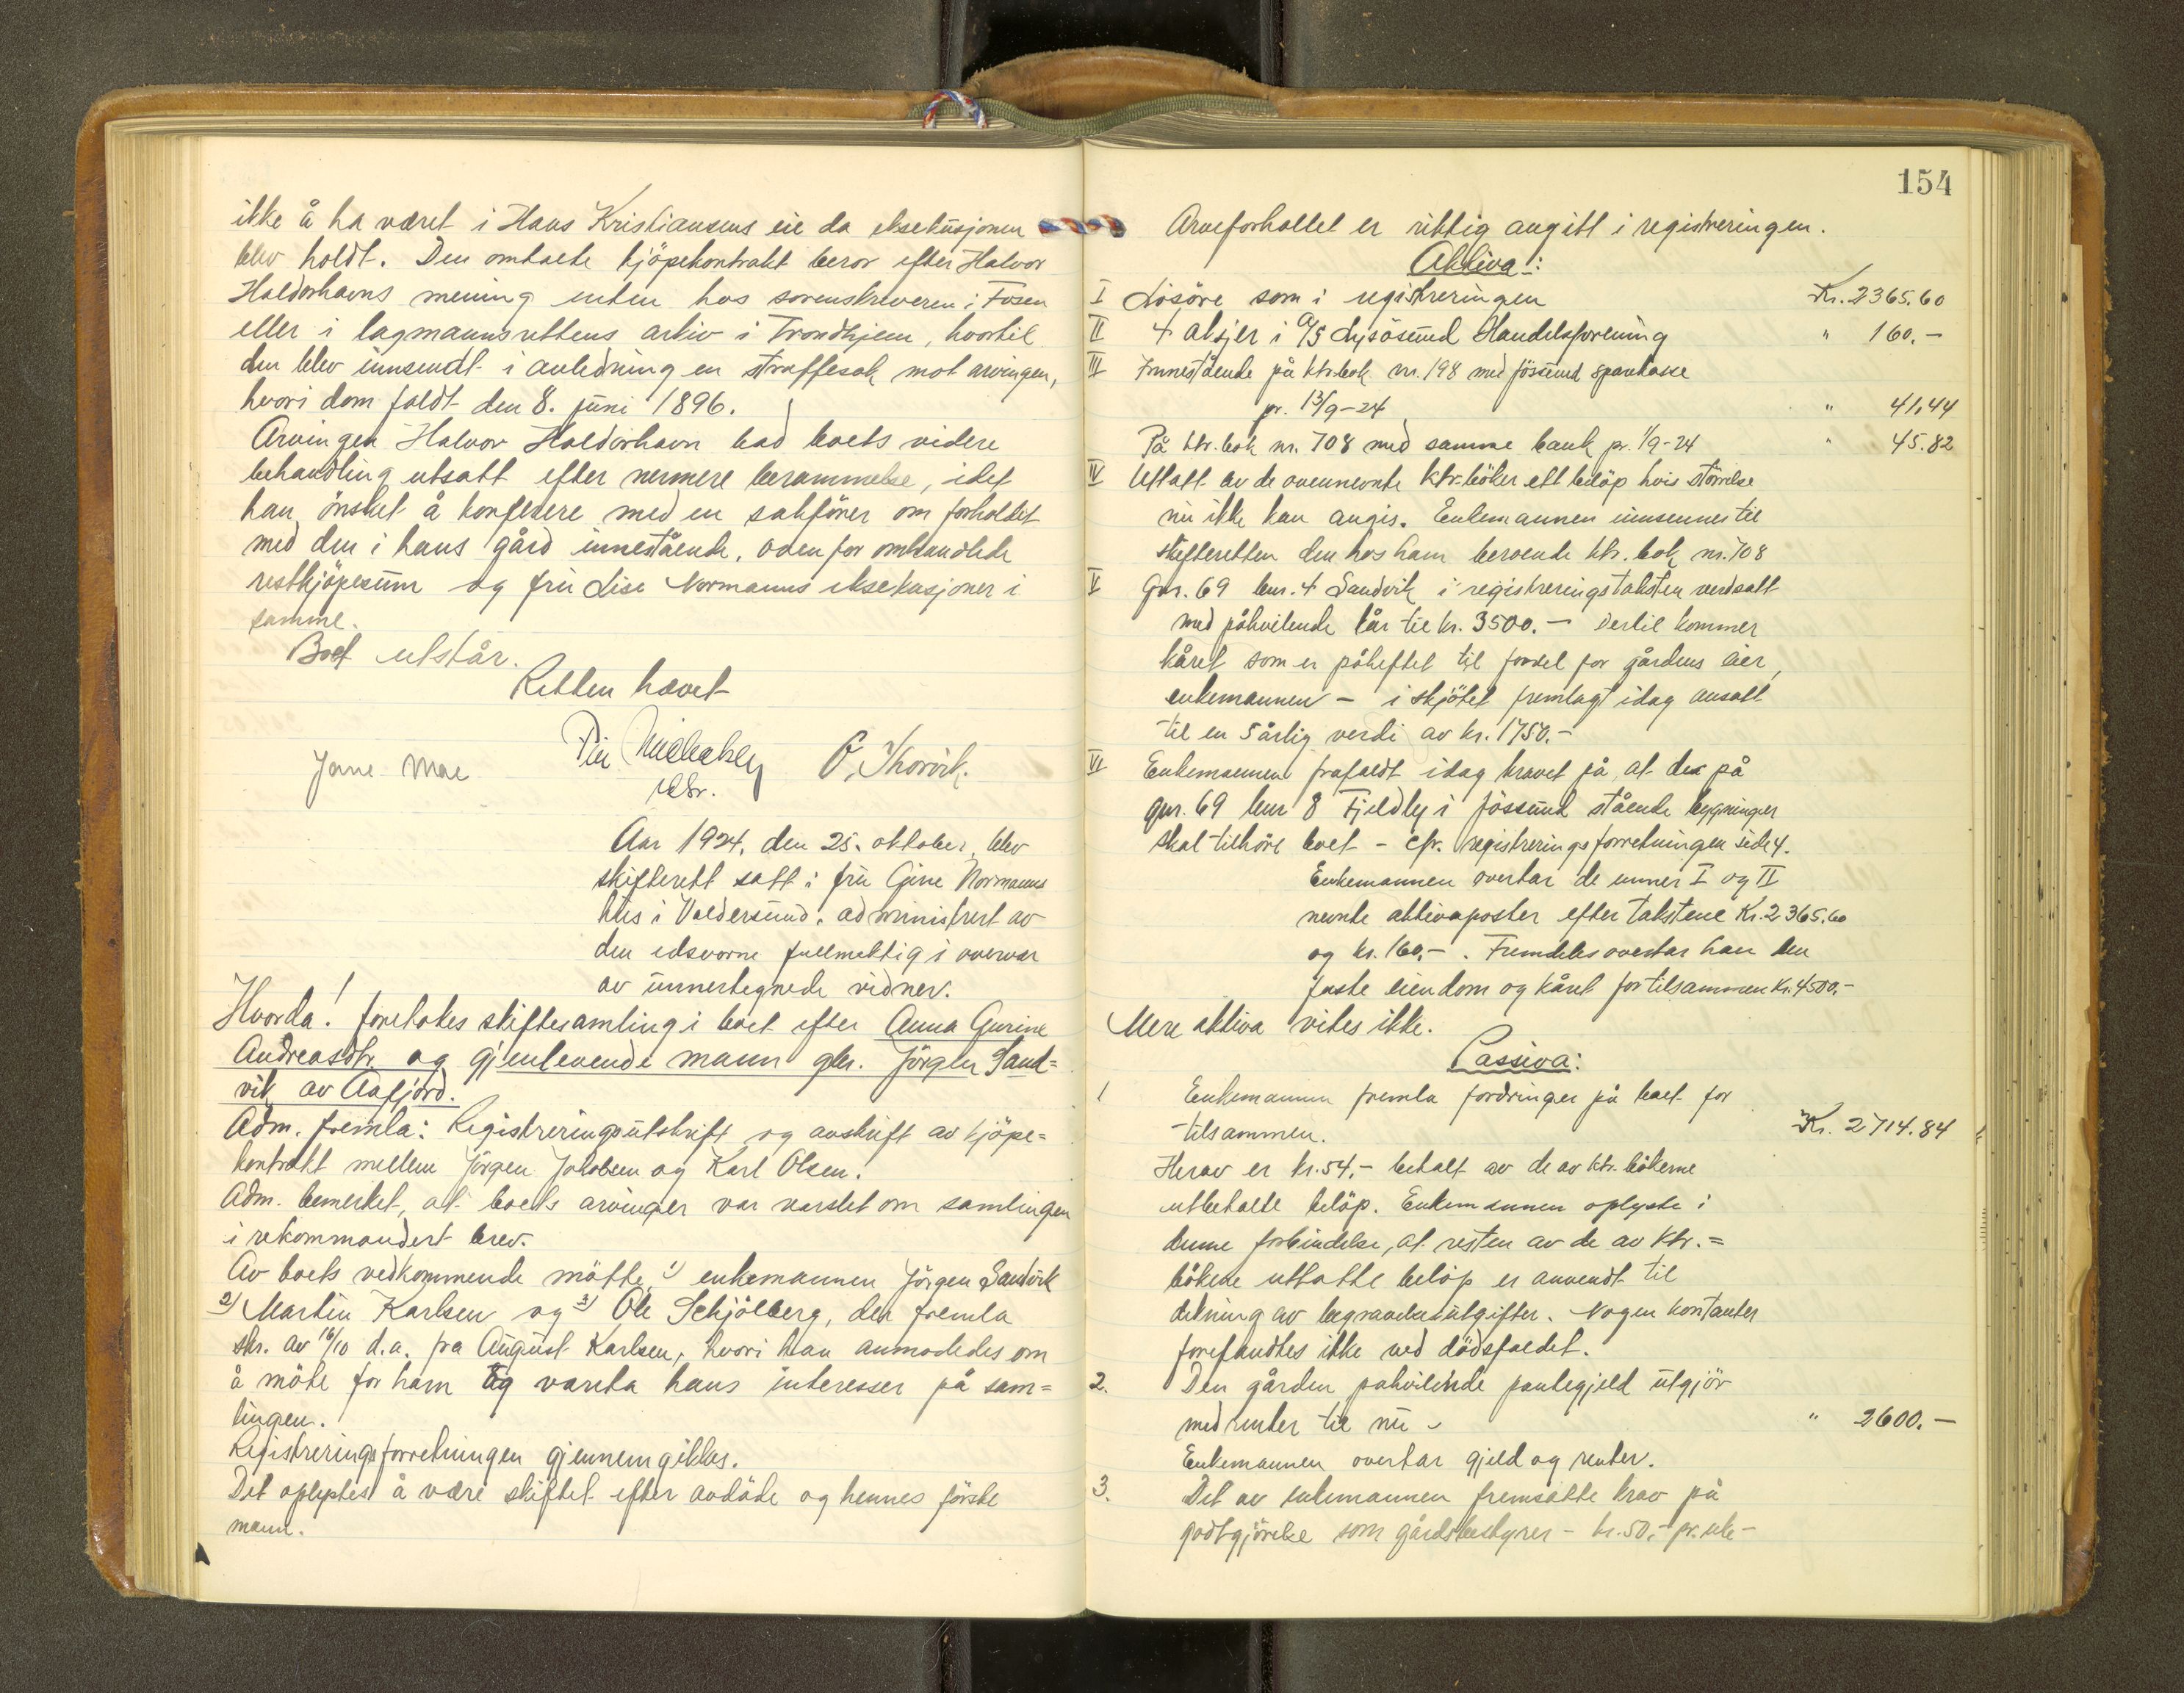 ikke å ha været i Hans Kristiansens eie da eksekusjonen
blev holdt. Den omtalte kjöpekontrakt beror efter Halvor
Haldorhavns mening enten hos sorenskriveren i Fosen
eller i lagmannsrettens arkiv i Trondhjem, hvortil
den blev innsendt i anledning en straffesak mot arvingen,
hvori dom faldt den 8. juni 1896.
Arvingen Halvor Haldorhavn bad boets videre
behandling utsatt efter nermere berammelse, idet
han önsket å konferere med en sakförer om forholdet
med den i hans gård innestående, ovenfor omhandlede
restkjöpesum og fru Lise Normanns eksekusjoner i
samme.
Boet utstår.
Retten hævet
Jane Moe
P. Skorvik.
Aar 1924, den 25. oktober, blev
skifterett satt i fru Gine Normanns
hus i Valdersund, administrert av
den edsvorne fullmektig i overvær
av unnertegnede vidner.
Hvorda! foretokes skiftesamling i boet efter Anna Gurine
Andreasdtr. og gjenlevende mann gbr. Jörgen Sand=
vik av Aafjord.
Adm. fremla: Registreringsutskrift og avskrift av kjöpe=
kontrakt mellem Jörgen Jakobsen og Karl Olsen.
Adm. bemerket, at boets arvinger var varslet om samlingen
i rekommandert brev.
Av boets vedkommende mötte 1) enkemannen Jörgen Sandvik
2) Martin Karlsen og 3) Ole Schjölberg, der fremla
skr. av 16/10 d.a. fra August Karlsen, hvori han anmodedes om
å möte for ham og vareta hans interesser på sam=
lingen.
Registreringsforretningen gjennemgikkes.
Det oplystes å være skiftet efter avdöde og hennes förste
mann.
154
Arveforholdet er riktig angitt i registreringen.
Aktiva:
I Lösöre som i registreringen Kr. 2365.60
II 4 aksjer i A/S Lysösund Handelsforening " 160.-
III Innestående på ktr.bok nr. 198 med Jössund sparkasse
pr. 13/9-24 " 41,44
På ktr.bok nr. 708 med samme bank pr. 1/9-24 " 45.82
IV Uttatt av de ovennevnte ktr.böker ett belöp hvis störrelse
nu ikke kan angis. Enkemannen innsenner til
skifteretten den hos ham beroende ktr.bok nr. 708
V Gnr. 69 bnr. 4 Sandvik i registreringstaksten verdsatt
med påhvilende kår til kr. 3500.- Dertil kommer
kåret som er påheftet til fordel for gårdens eier,
enkemannen - i skjötet fremlagt idag ansatt
til en 5 årlig verdi av kr. 1750.-
VI Enkemannen frafaldt idag kravet på, at de på
gnr. 69 bnr 8 Fjeldly i Jössund stående bygninger
skal tilhöre boet - cfr. registreringsforretningen side 4.
Enkemannen overtar de unner I og II
nevnte aktivaposter efter takstene Kr. 2365.60
og kr. 160,-. Fremdeles overtar han den
faste eiendom og kåret for tilsammen Kr. 4500.-
Mere aktiva vites ikke.
Passiva:
1 Enkemannen fremla fordringer på boet for
tilsammen. Kr. 2714.84
Herav er kr. 54.- betalt av de av ktr.bökerne
utbetalte belöp. Enkemannen oplyste i
denne forbindelse, at resten av de av ktr.=
bökene uttatte belöp er anvendt til
dekning av begravelsesutgifter. Nogen kontanter
forefandtes ikke ved dödsfaldet.
2. Den gården påhvilende pantegjeld utgjör
med renter til nu " 2600.-
Enkemannen overtar gjeld og renter.
3. Det av enkemannen fremsatte krav på
godtgjörelse som gårdsbestyrer - kr. 50.- pr. uke -